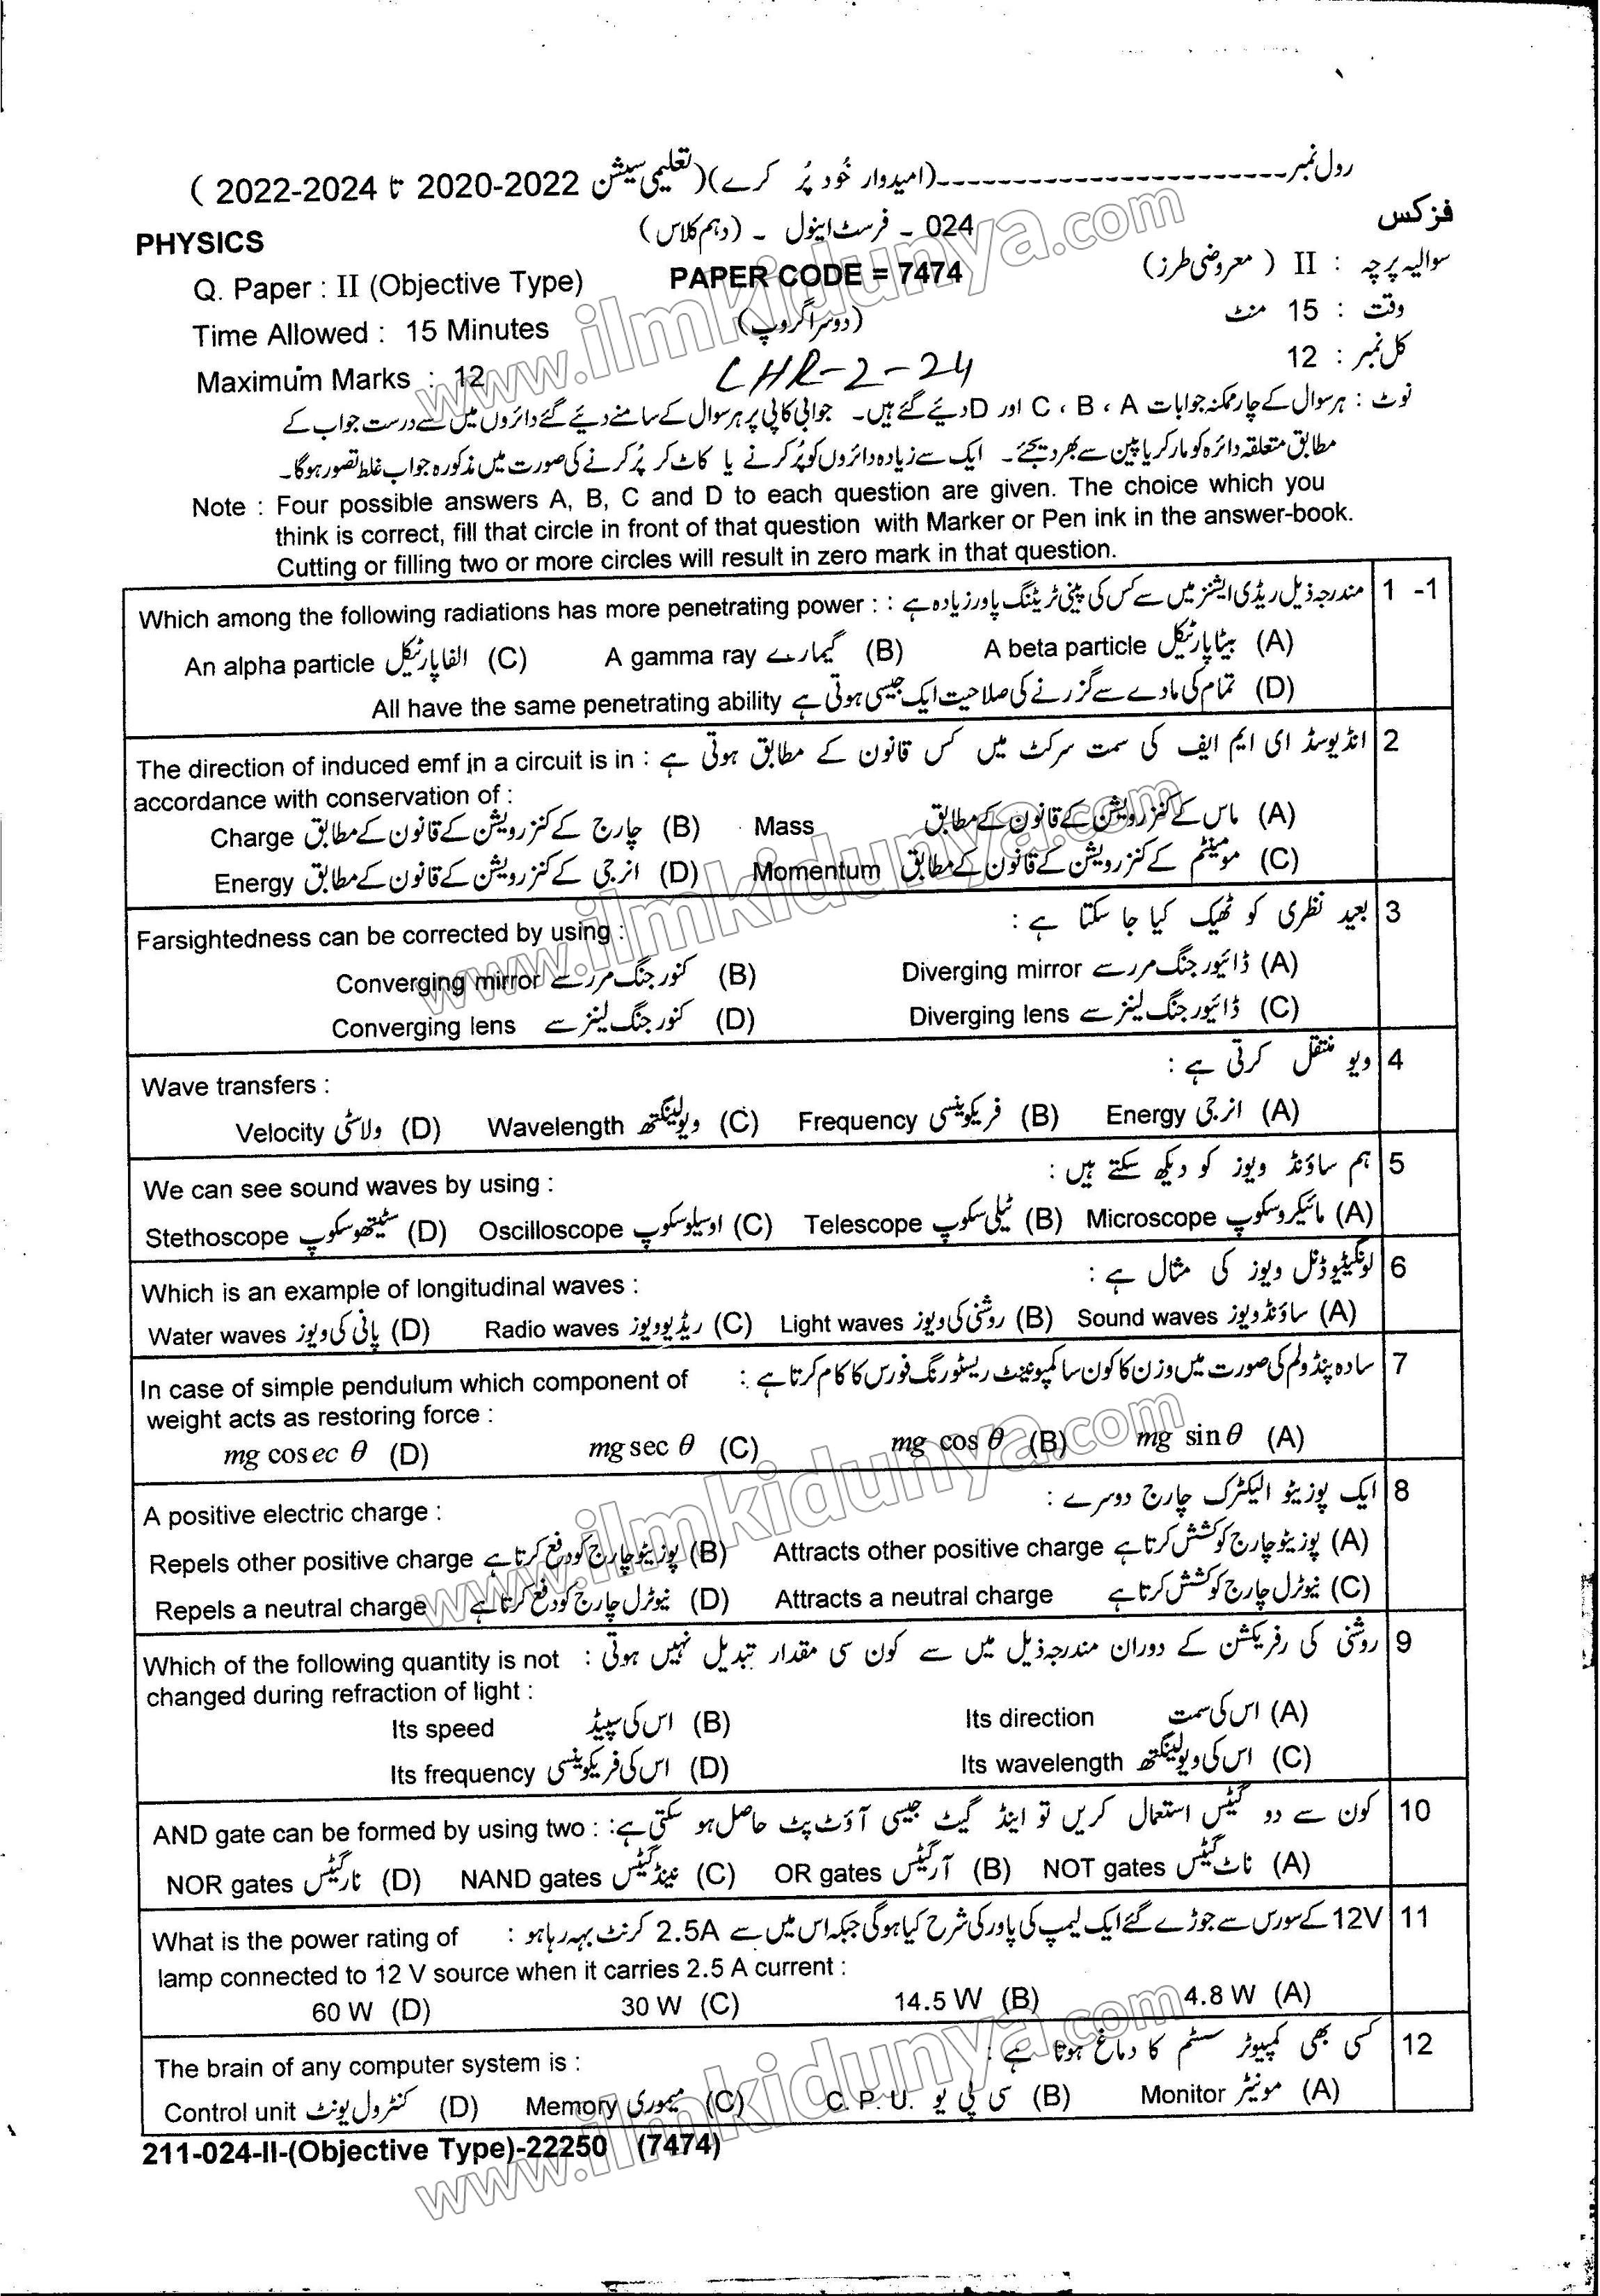 رول نمبر------------------------(امیدوار خُود پُر کرے)(تعلیمی سیشن 2022-2020 تا 2024-2022 )
فزکس
024 - فرسٹ اینول - (دہم کلاس)
PHYSICS
سوالیہ پرچہ : II ( معروضی طرز)
PAPER CODE = 7474
Q. Paper : II (Objective Type)
وقت : 15 منٹ
(دوسرا گروپ)
Time Allowed : 15 Minutes
کل نمبر : 12
LHR-2-24
Maximum Marks : 12
نوٹ : ہر سوال کے چار ممکنہ جوابات C ، B ، A اور D دیئے گئے ہیں۔ جوابی کاپی پر ہر سوال کے سامنے دیئے گئے دائروں میں سے درست جواب کے
مطابق متعلقہ دائرہ کو مارکر یا پین سے بھر دیجئے۔ ایک سے زیادہ دائروں کو پُر کرنے یا کاٹ کر پُر کرنے کی صورت میں مذکورہ جواب غلط تصور ہوگا۔
Note : Four possible answers A, B, C and D to each question are given. The choice which you
think is correct, fill that circle in front of that question with Marker or Pen ink in the answer-book.
Cutting or filling two or more circles will result in zero mark in that question.
1 -1 مندرجہ ذیل ریڈی ایشنز میں سے کس کی پینی ٹریٹنگ پاور زیادہ ہے : Which among the following radiations has more penetrating power :
(A) بیٹا پارٹیکل A beta particle (B) گیمارے A gamma ray (C) الفا پارٹیکل An alpha particle
(D) تمام کی مادے سے گزرنے کی صلاحیت ایک جیسی ہوتی ہے All have the same penetrating ability
2 انڈیوسڈ ای ایم ایف کی سمت سرکٹ میں کس قانون کے مطابق ہوتی ہے : The direction of induced emf in a circuit is in
accordance with conservation of :
(A) ماس کے کنزرویشن کے قانون کے مطابق Mass (B) چارج کے کنزرویشن کے قانون کے مطابق Charge
(C) مومینٹم کے کنزرویشن کے قانون کے مطابق Momentum (D) انرجی کے کنزرویشن کے قانون کے مطابق Energy
3 بعید نظری کو ٹھیک کیا جا سکتا ہے : Farsightedness can be corrected by using :
(A) ڈائیورجنگ مررسے Diverging mirror (B) کنورجنگ مررسے Converging mirror
(C) ڈائیورجنگ لینزسے Diverging lens (D) کنورجنگ لینزسے Converging lens
4 ویو منتقل کرتی ہے : Wave transfers :
(A) انرجی Energy (B) فریکوئنسی Frequency (C) ویولینگتھ Wavelength (D) ولاسٹی Velocity
5 ہم ساؤنڈ ویوز کو دیکھ سکتے ہیں : We can see sound waves by using :
(A) مائیکروسکوپ Microscope (B) ٹیلی سکوپ Telescope (C) اوسیلوسکوپ Oscilloscope (D) سٹیتھوسکوپ Stethoscope
6 لونگیٹیوڈنل ویوز کی مثال ہے : Which is an example of longitudinal waves :
(A) ساؤنڈویوز Sound waves (B) روشنی کی ویوز Light waves (C) ریڈیوویوز Radio waves (D) پانی کی ویوز Water waves
7 سادہ پنڈولم کی صورت میں وزن کا کون سا کمپونینٹ ریسٹورنگ فورس کا کام کرتا ہے : In case of simple pendulum which component of
weight acts as restoring force :
(A) mg sin θ (B) mg cos θ (C) mg sec θ (D) mg cosec θ
8 ایک پوزیٹو الیکٹرک چارج دوسرے : A positive electric charge :
(A) پوزیٹو چارج کو کشش کرتا ہے Attracts other positive charge (B) پوزیٹو چارج کو دفع کرتا ہے Repels other positive charge
(C) نیوٹرل چارج کو کشش کرتا ہے Attracts a neutral charge (D) نیوٹرل چارج کو دفع کرتا ہے Repels a neutral charge
9 روشنی کی رفریکشن کے دوران مندرجہ ذیل میں سے کون سی مقدار تبدیل نہیں ہوتی : Which of the following quantity is not
changed during refraction of light :
(A) اس کی سمت Its direction (B) اس کی سپیڈ Its speed
(C) اس کی ویولینگتھ Its wavelength (D) اس کی فریکوئنسی Its frequency
10 کون سے دو گیٹس استعمال کریں تو اینڈ گیٹ جیسی آؤٹ پٹ حاصل ہو سکتی ہے: AND gate can be formed by using two :
(A) ناٹ گیٹس NOT gates (B) آر گیٹس OR gates (C) نینڈ گیٹس NAND gates (D) نار گیٹس NOR gates
11 12V کے سورس سے جوڑے گئے ایک لیمپ کی پاور کی شرح کیا ہوگی جبکہ اس میں سے 2.5A کرنٹ بہہ رہا ہو : What is the power rating of
lamp connected to 12 V source when it carries 2.5 A current :
(A) 4.8 W (B) 14.5 W (C) 30 W (D) 60 W
12 کسی بھی کمپیوٹر سسٹم کا دماغ ہوتا ہے : The brain of any computer system is :
(A) مونیٹر Monitor (B) سی پی یو C. P. U. (C) میموری Memory (D) کنٹرول یونٹ Control unit
211-024-II-(Objective Type)-22250 (7474)
www.ilmkidunya.com
www.ilmkidunya.com
www.ilmkidunya.com
www.ilmkidunya.com